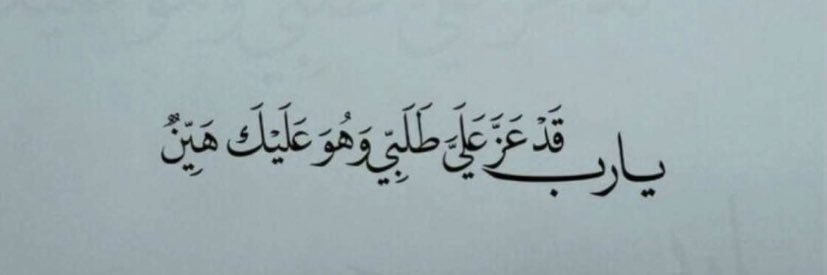 يارب قَدْ عَزَّ عَلَيَّ طَلَبِي وَهُوَ عَلَيْكَ هَيِّنٌ